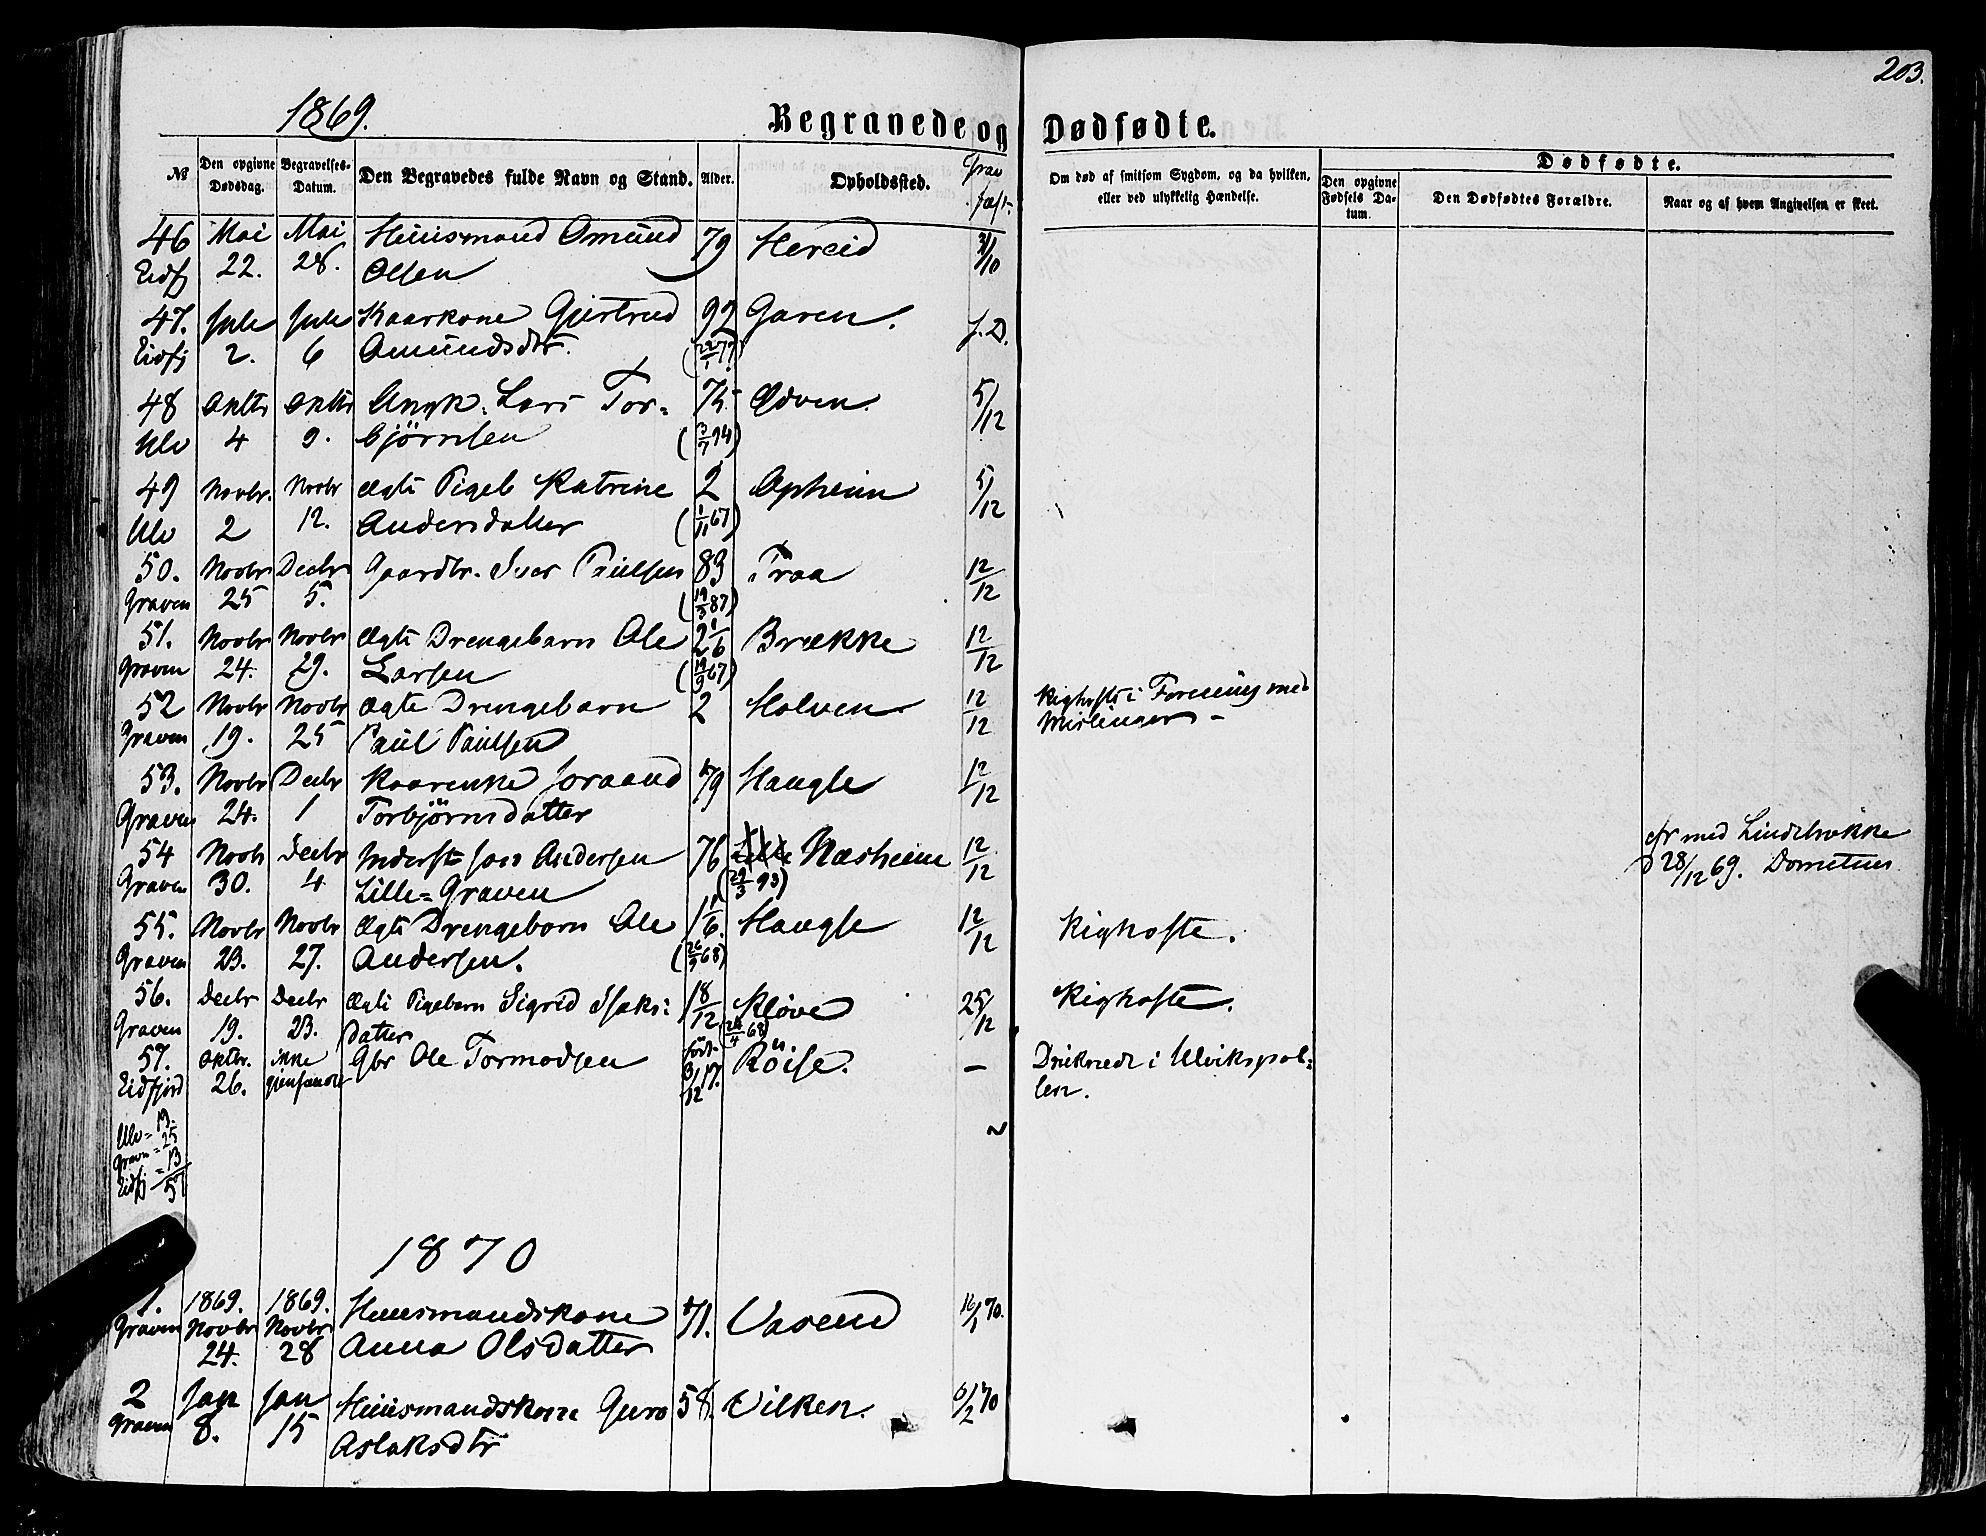 203.
1869.
Begravede og Dødfødte.
№ Den opgivne Dødsdag. Begravelses-Datum. Den Begravedes fulde Navn og Stand. Alder. Opholdssted. Om død af smitsom Sygdom, og da hvilken, eller ved ulykkelig Hændelse. Dødfødte. Den opgivne Fødsels Datum. Den Dødfødtes Forældre. Naar og af hvem Angivelsen er skeet.
46 Mai Mai Huusmand Omund 79 Hereid
Eidfj 22. 28. Olsen
47. Jule Jule Kaarkone Gjertrud 92 Garen. J.D.
Eidfj 2. 6 Amundsdtr. (22/1 77)
48 Oktbr Oktbr Ungk. Lars Tor= 75 Odven. 5/12
Ulv 4 9. bjørnsen (3/7 94)
49 Novbr. Novbr Ægte Pigeb Katrine 2 Opheim 5/12
Ulv 2 12. Andersdatter (1/11 67)
50. Novbr Decbr Gaardbr. Iver Paulsen 83 Traa 12/12
Graven 25 5. (19/3 87)
51. Novbr Novbr Ægte Drengebarn Ole 2 1/6 Brække 12/12
Graven 24. 29. Larsen (19/9 67)
52 Novbr Novbr Ægte Drengebarn 2 Holven 12/12 Kighoste i Forening med
Graven 19. 25 Paul Paulsen Mislinger -
53. Novbr Decbr Kaarenke Joraand 79 Haugse 12/12
Graven 24. 1 Torbjørnsdatter
54 Novbr Decbr Inderst Jon Andersen 76 Næsheim 12/12 cfr med Lindebrække
Graven 30. 4 Lille-Graven (29/3 93) D 28/12 69.
55. Novbr Novbr Ægte Drengebarn Ole 1 1/6. Haugse 12/12 Kighoste.
Graven 23. 27. Andersen. (26/9 68)
56. Decbr Decbr Ægte Pigebarn Sigrid Isaks: 1 8/12 Kløve 25/12 Kighoste.
Graven 19. 23. datter (24/4 68)
57. Oktbr. ikke Gbr Ole Tormodsen født Röise. - Druknede i Ulvikspol=
Eidfjord 26. gjenfunden 3/12 17. len.
Ulv = 13.
Graven = 25
Eidfj = 13
57
1870
1. 1869. 1869. Huusmandskone 71. Vasend 16/1 70.
Graven Novbr Novbr Anna Olsdatter
24. 28
2 Jan Jan Huusmandskone Guro 58. Vilken. 6/2 70
Graven 8. 15 Aslaksdtr